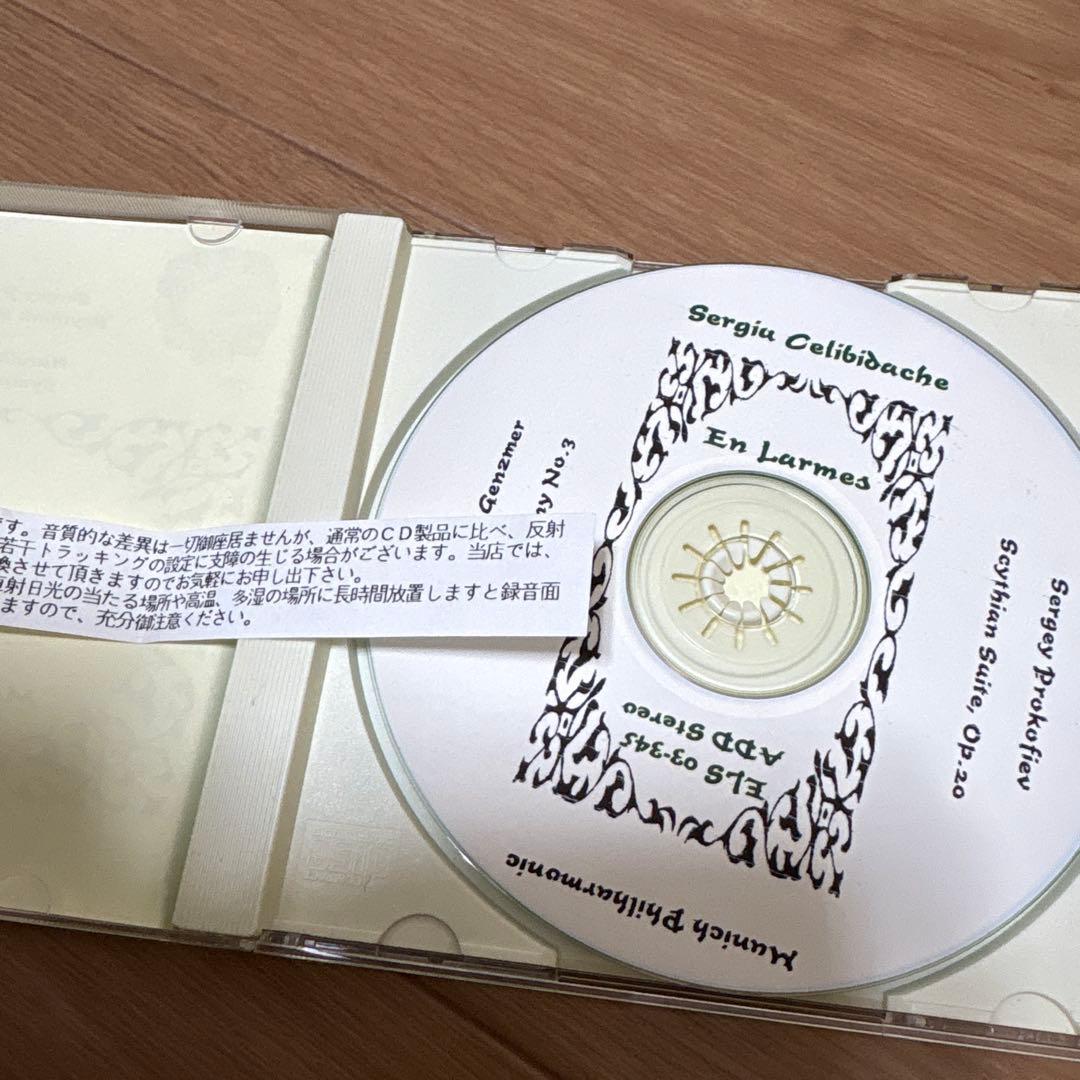 Sergiu Celibidache
En Larmes
Genzmer
No.3
Sergey Prokofiev
Scythian Suite, Op.20
ELS 03-345
ADD Stereo
Munich Philharmonic
す。音質的な差異は一切御座居ませんが、通常のCD製品に比べ、反射
若干トラッキングの設定に支障の生じる場合がございます。当店では、
換させて頂きますのでお気軽にお申し出下さい。
射日光の当たる場所や高温、多湿の場所に長時間放置しますと録音面
ますので、充分御注意ください。